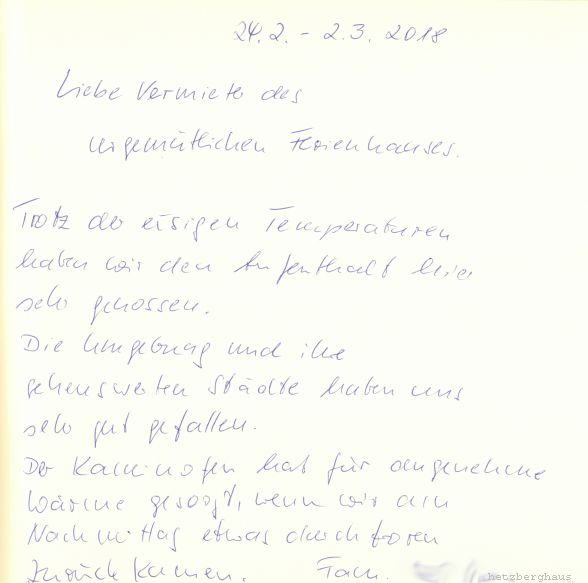 24.2. - 2.3. 2018
Liebe Vermieter des
urgemütlichen Ferienhauses.
Trotz der eisigen Temperaturen
haben wir den Aufenthalt hier
sehr genossen.
Die Umgebung und ihre
sehenswerten Städte haben uns
sehr gut gefallen.
Der Kaminofen hat für angenehme
Wärme gesorgt, wenn wir am
Nachmittag etwas durchfroren
zurück kamen. Fam.
hetzberghaus